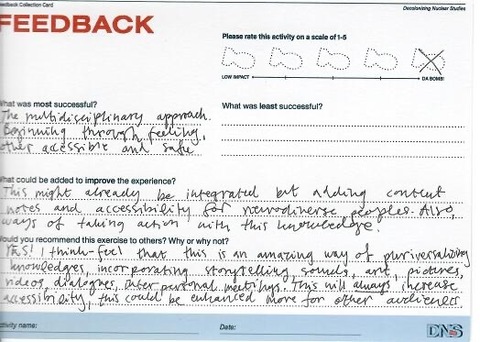 eedback Collection Card
Decolonizing Nuclear Studies
FEEDBACK
Please rate this activity on a scale of 1-5
LOW IMPACT
DA BOMB!
hat was most successful?
What was least successful?
The multidisciplinary approach.
Beginning through feeling,
other accessible and safe
hat could be added to improve the experience?
This might already be integrated but adding content
notes and accessibility for neurodiverse peoples. Also,
ways of taking action with this knowledge.
ould you recommend this exercise to others? Why or why not?
YES! I think-feel that this is an amazing way of pluriversalizing
knowledges, incorporating storytelling, sounds, art, pictures,
videos, dialogues, inter personal meetings. This will always increase
accessibility, this could be enhanced more for other audiences.
ctivity name:
Date:
DNS